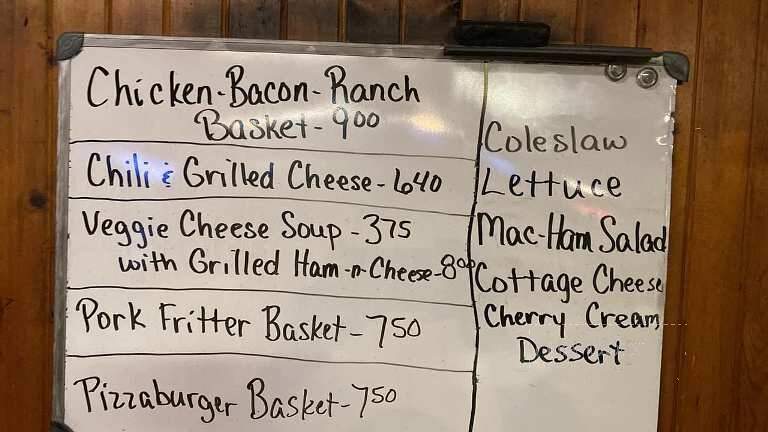 Chicken-Bacon-Ranch
Basket-900
Chili & Grilled Cheese-640
Veggie Cheese Soup-375
with Grilled Ham-n-Cheese-800
Pork Fritter Basket-750
Pizzaburger Basket-750
Coleslaw
Lettuce
Mac-Ham Salad
Cottage Cheese
Cherry Cream
Dessert